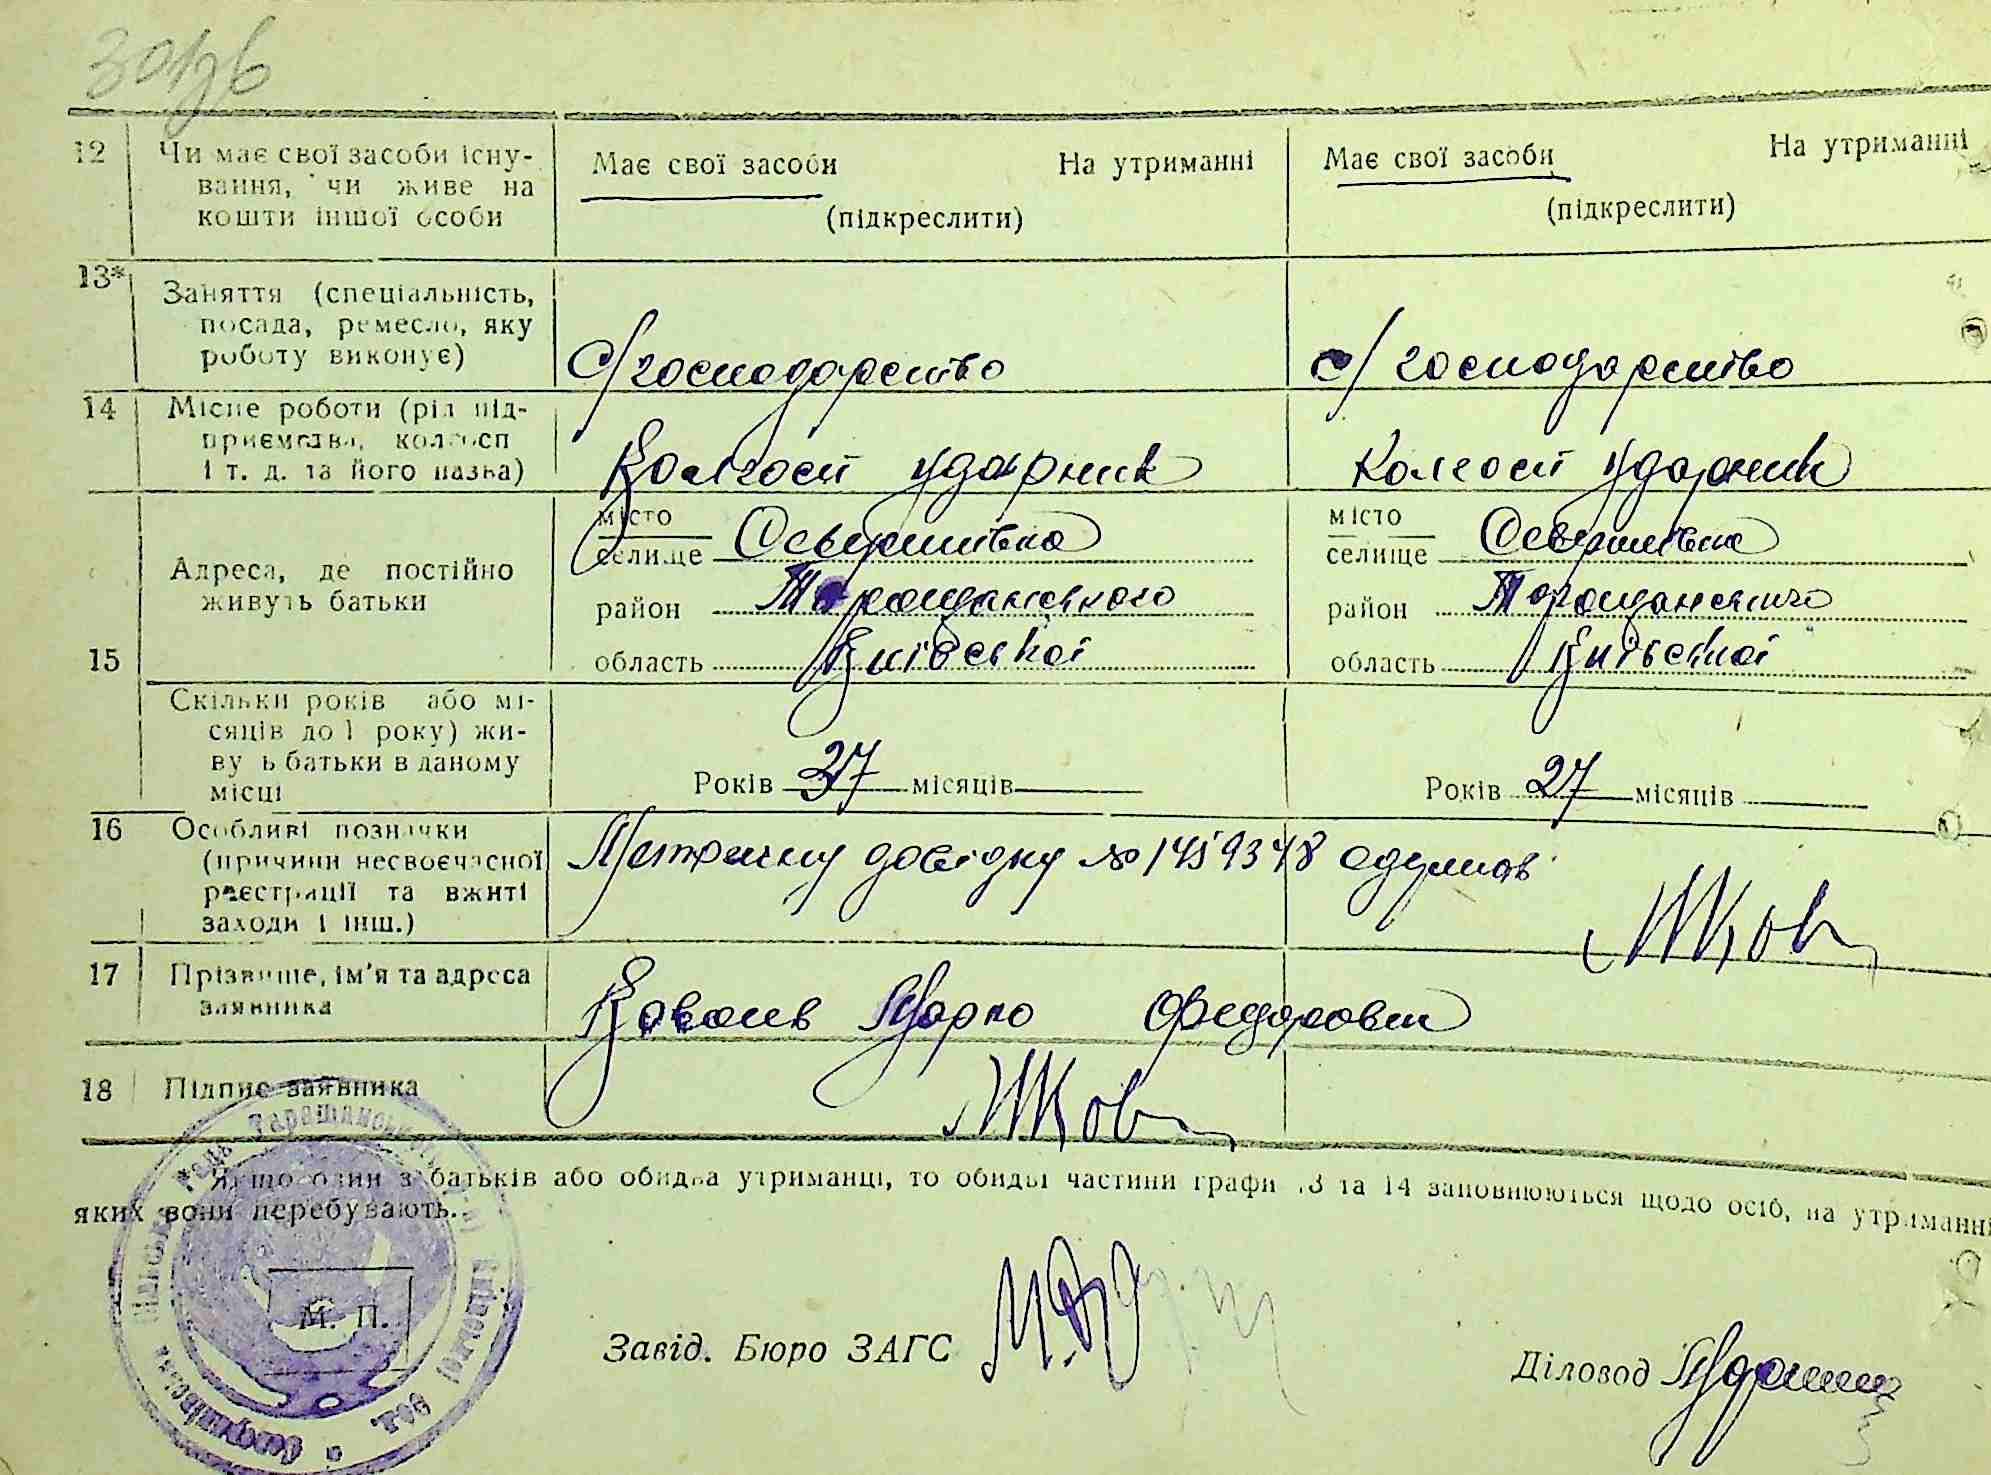 12 Чи має свої засоби існу-
вання, чи живе на
кошти іншої особи
Має свої засоби На утриманні
(підкреслити)
Має свої засоби На утриманні
(підкреслити)
13* Заняття (спеціальність,
посада, ремесло, яку
роботу виконує)
с/господарство
с/господарство
14 Місце роботи (рід під-
приємства, колгосп
і т. д. та його назва)
Колгосп ударник
Колгосп ударник
15 Адреса, де постійно
живуть батьки
місто
селище
район Таращанського
область Київської
місто
селище
район Таращанського
область Київської
Скільки років або мі-
сяців до 1 року) жи-
ву ь батьки в даному
місці
Років 37 місяців
Років 27 місяців
16 Особливі позначки
(причини несвоєчасної
реєстрації та вжиті
заходи і інш.)
Метричну довідку № 1459348 одержав
17 Прізвище, ім'я та адреса
заявника
Коваль Марко Федорович
18 Підпис заявника
Якщо один з батьків або обидва утриманці, то обидві частини графи 13 та 14 заповнюються щодо осіб, на утриманні
яких вони перебувають.
М. П.
Завід. Бюро ЗАГС
Діловод